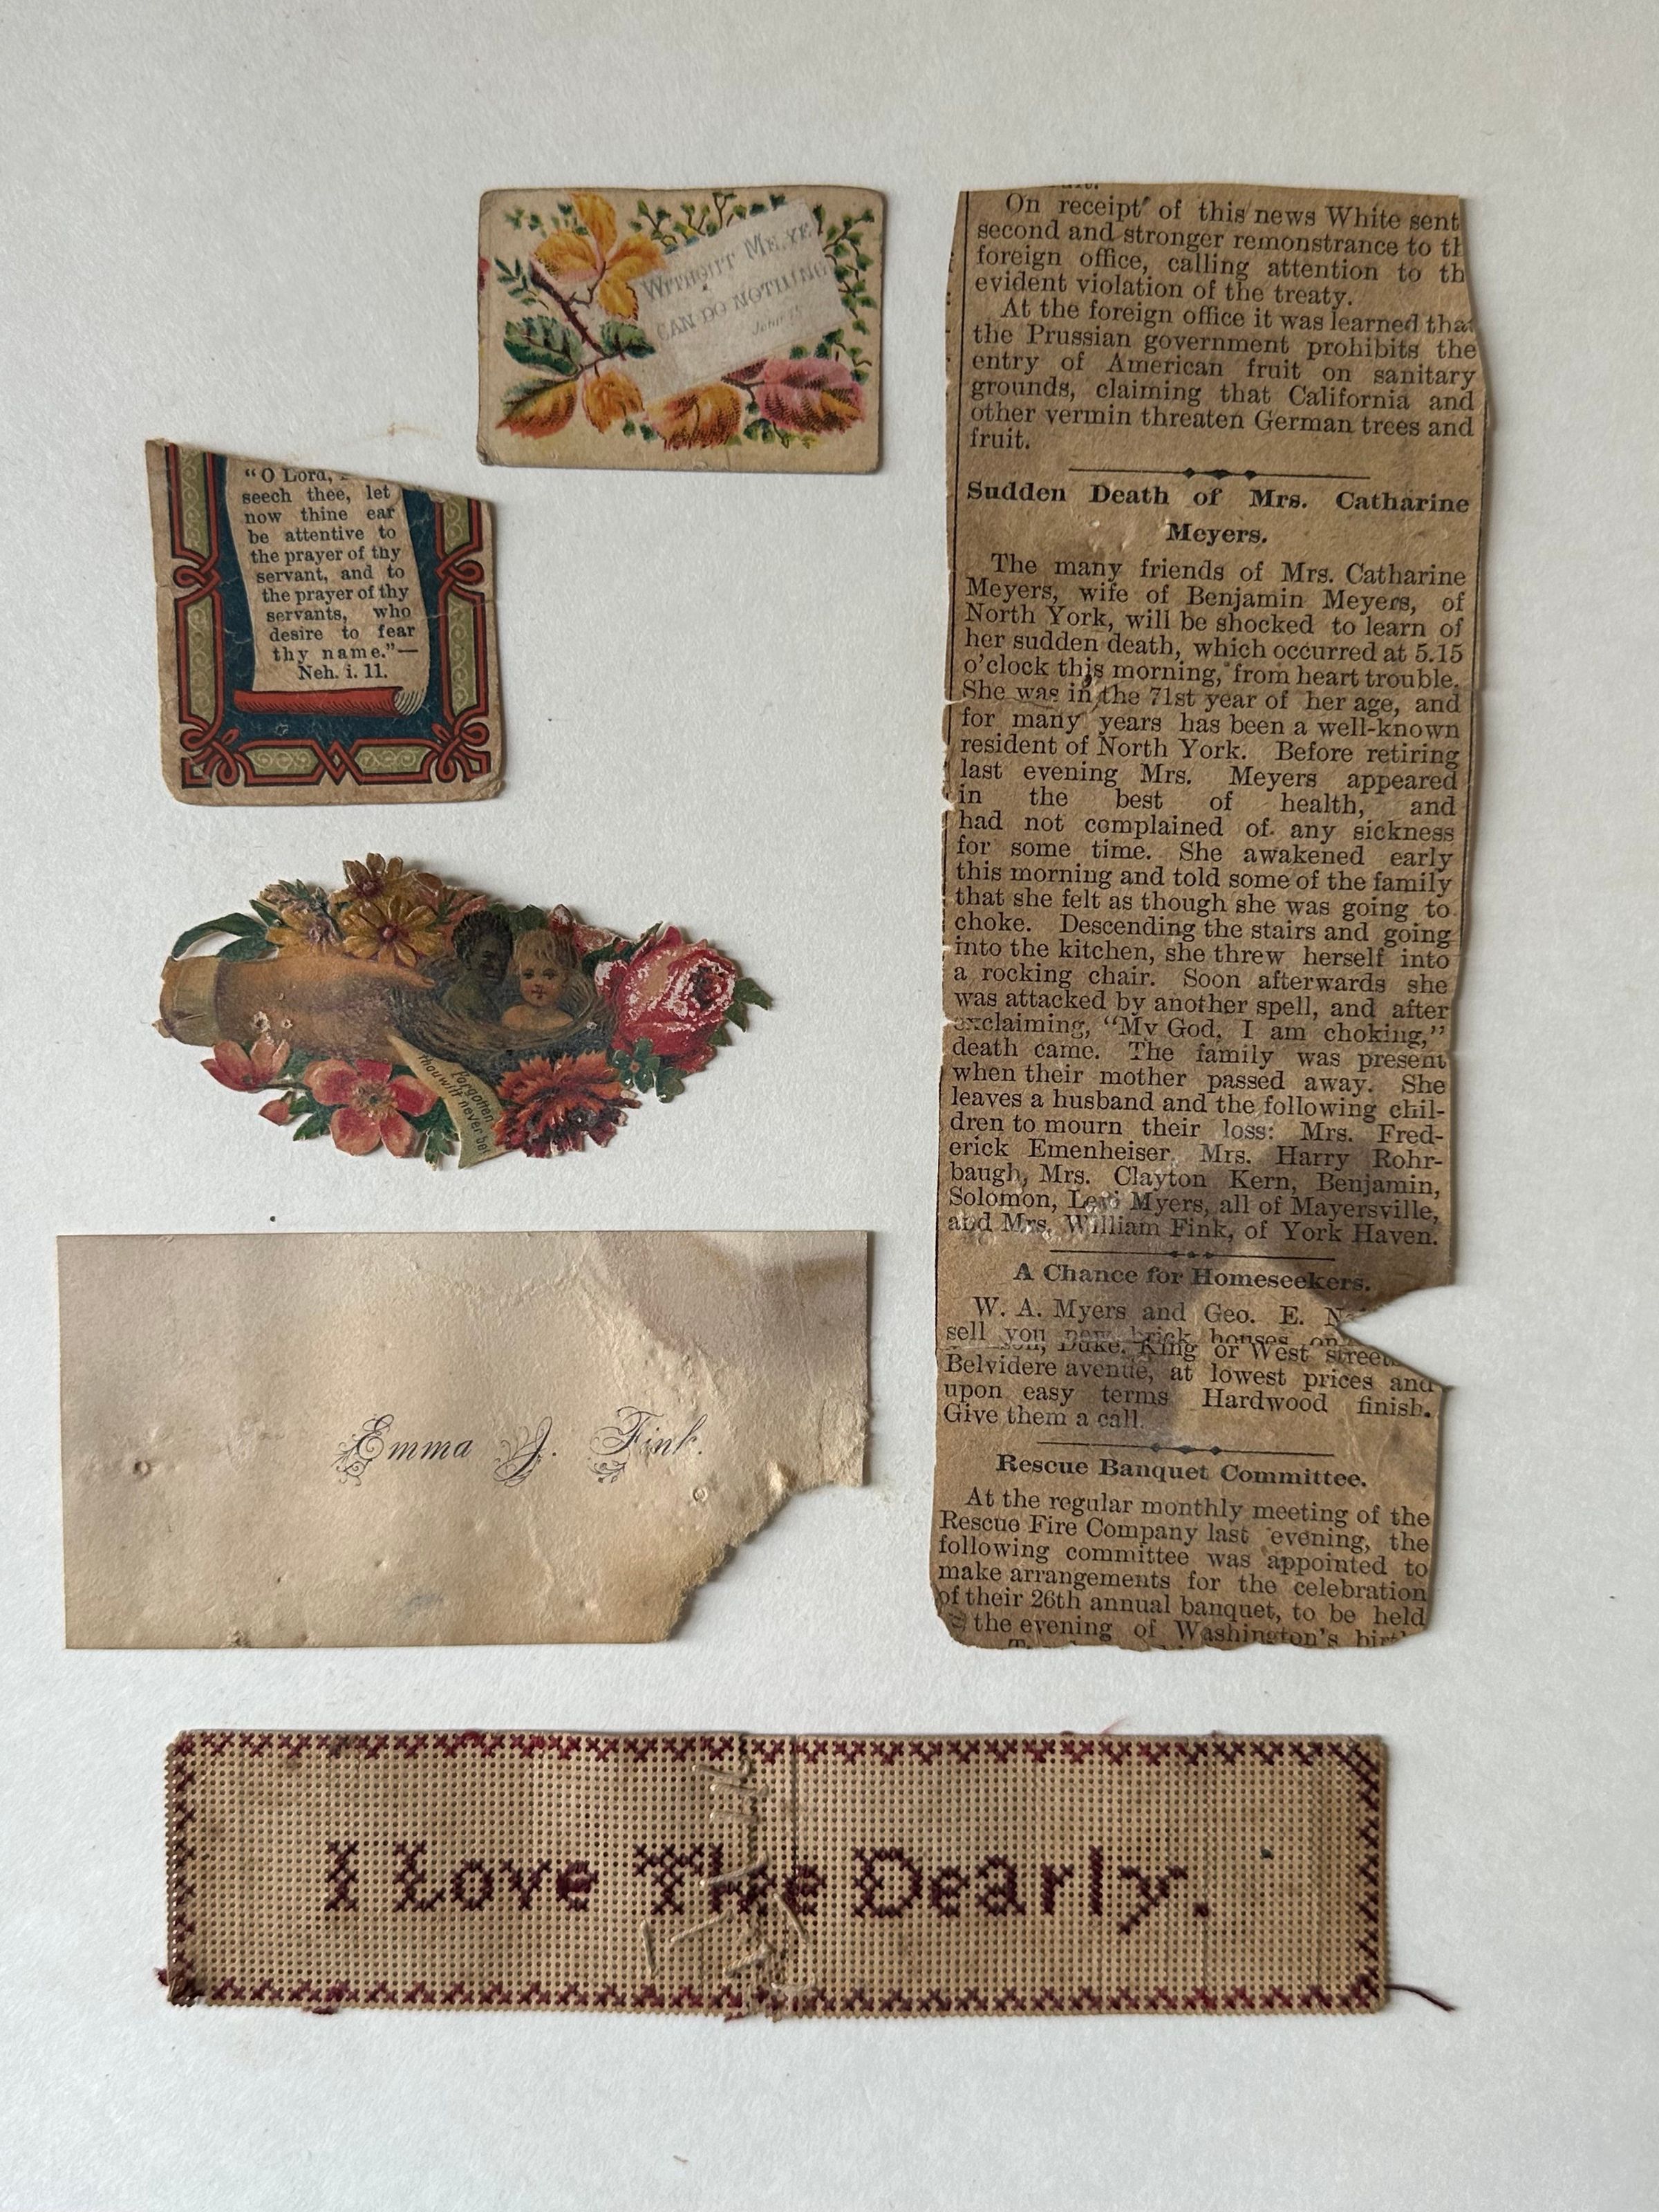 WITHOUT ME, YE
CAN DO NOTHING.
John 15
"O Lord,
seech thee, let
now thine ear
be attentive to
the prayer of thy
servant, and to
the prayer of thy
servants, who
desire to fear
thy name."—
Neh. i. 11.
Forgotten
thou wilt never be!
Emma J. Fink.
On receipt of this news White sent
second and stronger remonstrance to th
foreign office, calling attention to th
evident violation of the treaty.
At the foreign office it was learned that
the Prussian government prohibits the
entry of American fruit on sanitary
grounds, claiming that California and
other vermin threaten German trees and
fruit.
Sudden Death of Mrs. Catharine
Meyers.
The many friends of Mrs. Catharine
Meyers, wife of Benjamin Meyers, of
North York, will be shocked to learn of
her sudden death, which occurred at 5.15
o'clock this morning, from heart trouble.
She was in the 71st year of her age, and
for many years has been a well-known
resident of North York. Before retiring
last evening Mrs. Meyers appeared
in the best of health, and
had not complained of any sickness
for some time. She awakened early
this morning and told some of the family
that she felt as though she was going to
choke. Descending the stairs and going
into the kitchen, she threw herself into
a rocking chair. Soon afterwards she
was attacked by another spell, and after
exclaiming, "My God, I am choking,"
death came. The family was present
when their mother passed away. She
leaves a husband and the following chil-
dren to mourn their loss: Mrs. Fred-
erick Emenheiser, Mrs. Harry Rohr-
baugh, Mrs. Clayton Kern, Benjamin,
Solomon, Levi Myers, all of Mayersville,
and Mrs. William Fink, of York Haven.
A Chance for Homeseekers.
W. A. Myers and Geo. E.
sell you new brick houses on
Duke, King or West street
Belvidere avenue, at lowest prices and
upon easy terms Hardwood finish.
Give them a call.
Rescue Banquet Committee.
At the regular monthly meeting of the
Rescue Fire Company last evening, the
following committee was appointed to
make arrangements for the celebration
of their 26th annual banquet, to be held
the evening of Washington's
I Love The Dearly.